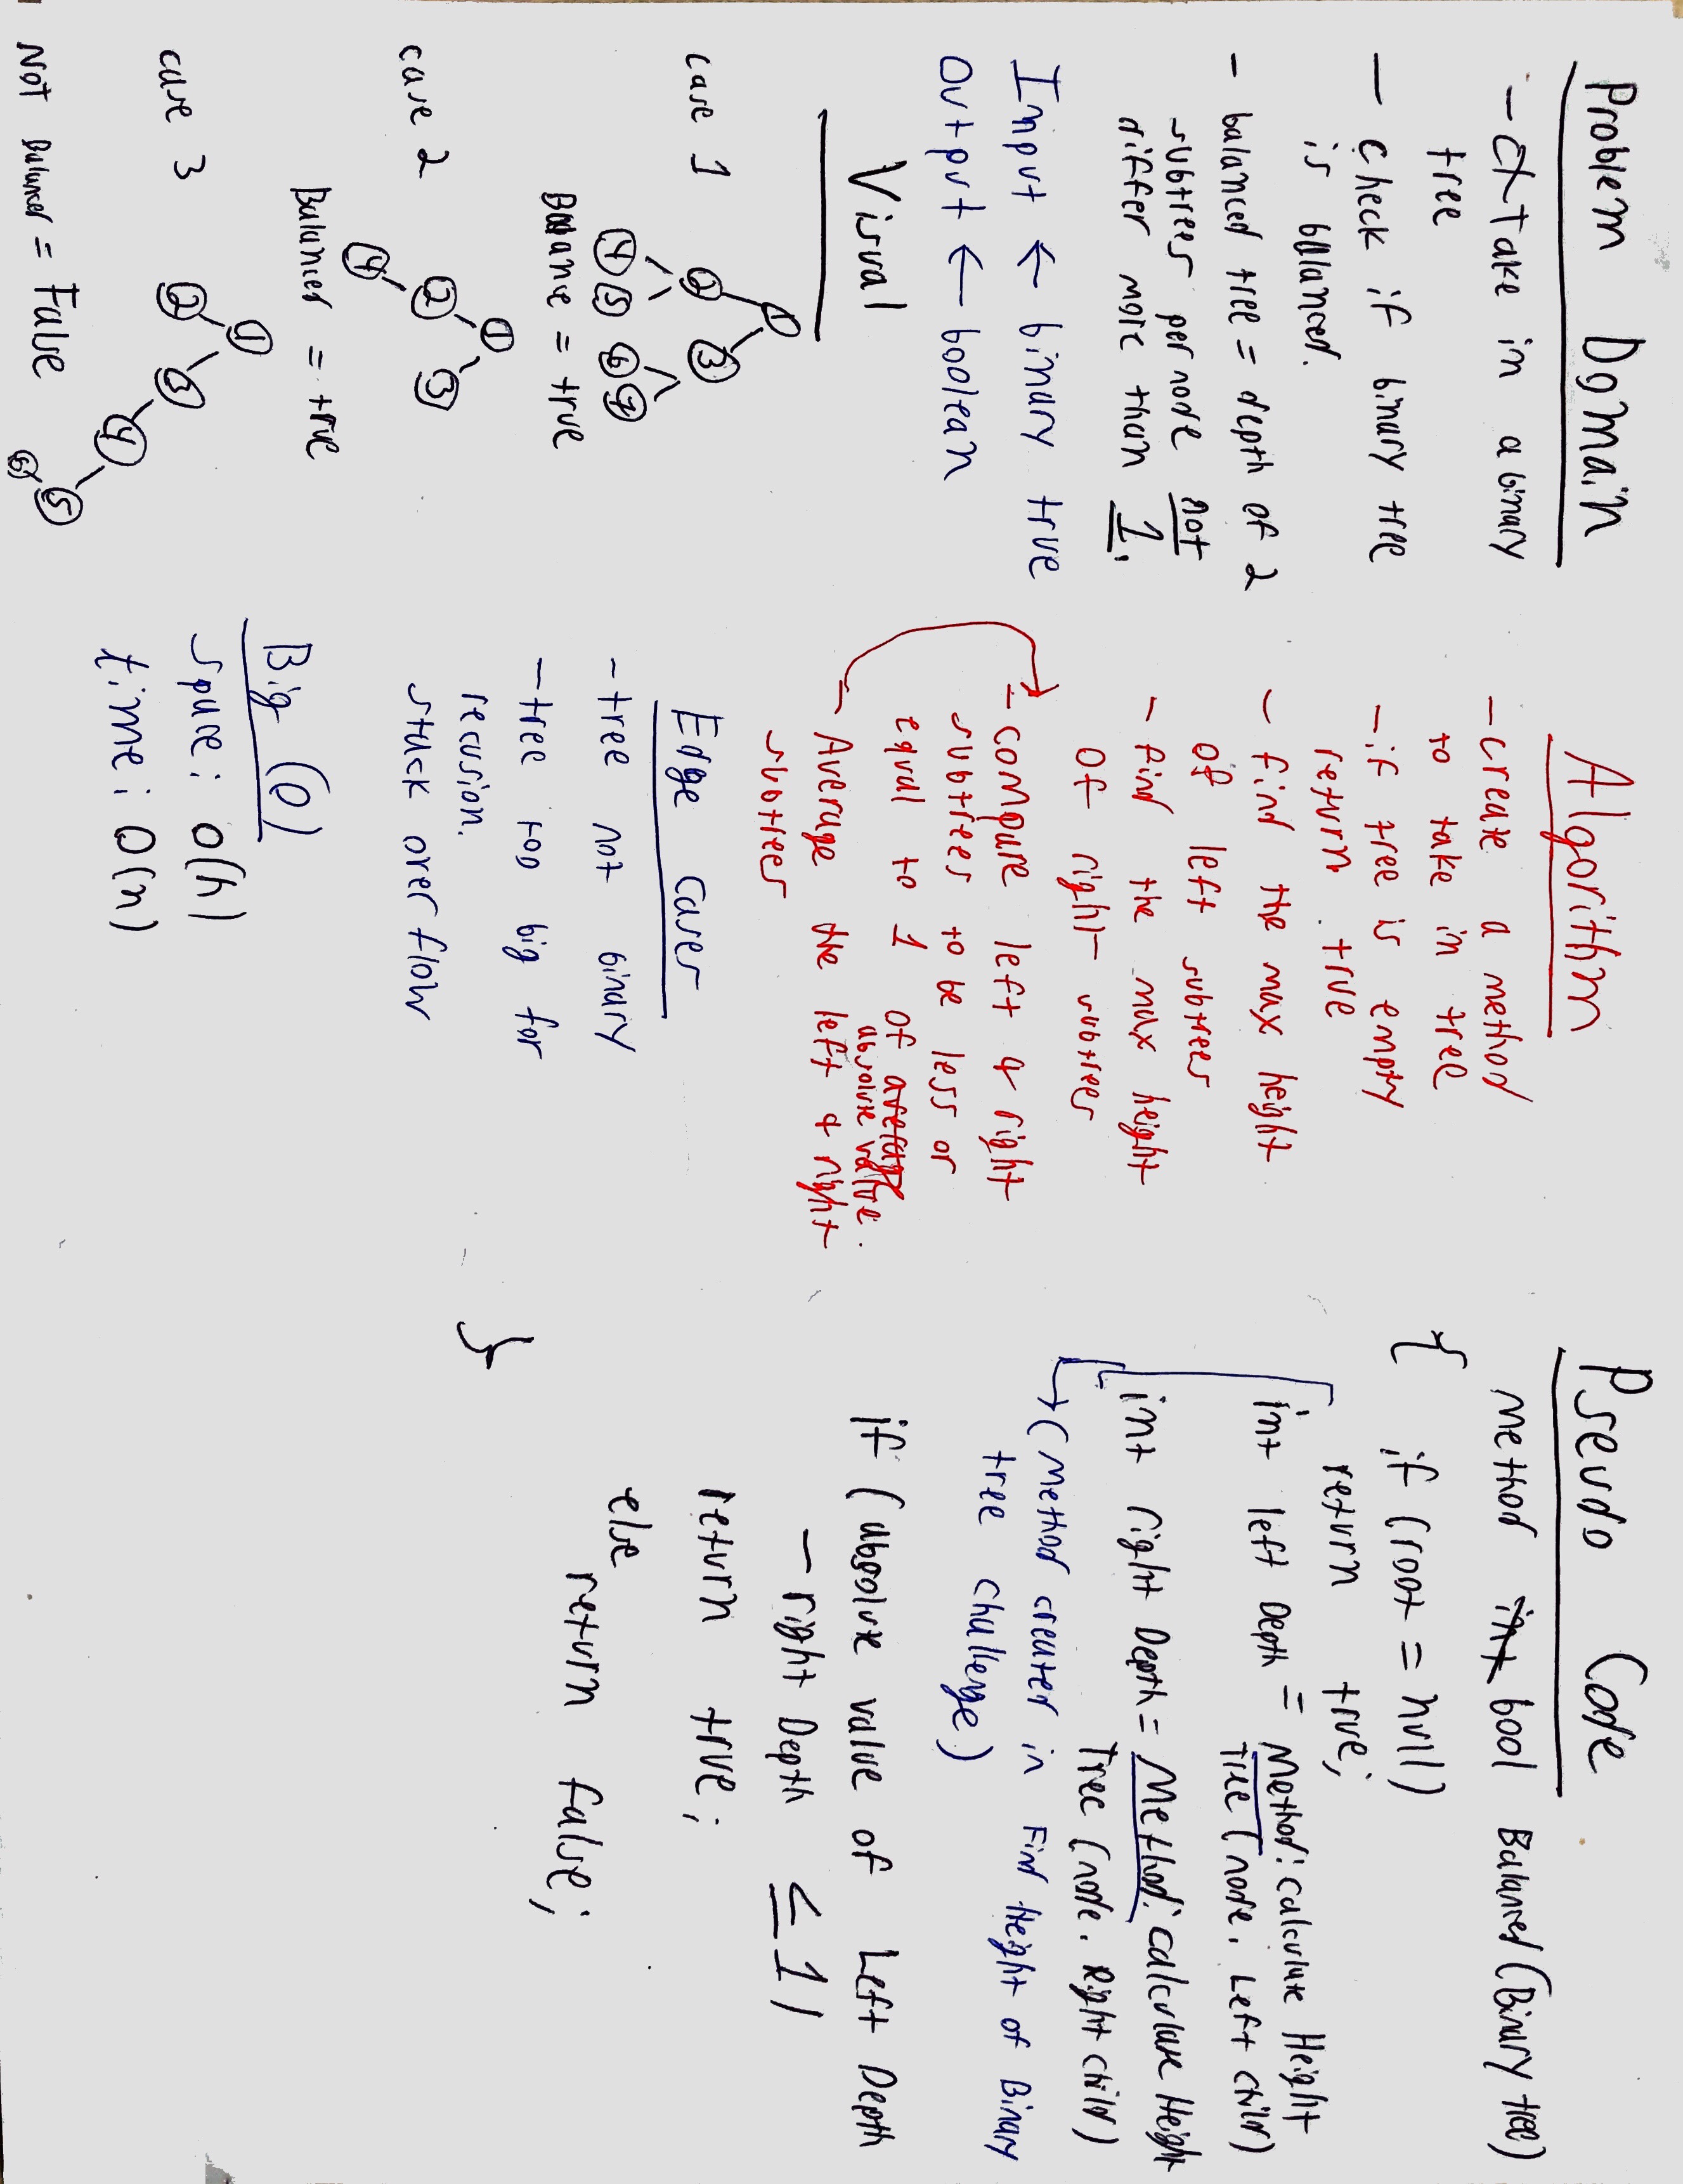 Problem Domain
- take in a binary
tree
- check if binary tree
is balanced.
- balanced tree = depth of 2
subtrees per node not
differ more than 1.
Input ← binary true
Output ← boolean
Visual
case 1
1
2 3
4 5 6 7
Balance = true
case 2
1
2 3
4
Balanced = true
case 3
1
2 3
4
5
6
Not Balanced = False
Algorithm
- create a method
to take in tree
- if tree is empty
return true
- find the max height
of left subtrees
- find the max height
of right subtrees
- compare left & right
subtrees to be less or
equal to 1 of average
absolute value.
- Average the left & right
subtrees
Edge Cases
- tree not binary
- tree too big for
recusion.
stack overflow
Big (O)
space: O(h)
time: O(n)
Pseudo Code
method int bool Balanced (Binary tree)
{
if (root = null)
return true;
int left Depth = Method: calculate Height
Tree (node. Left child)
int right Depth = Method: calculate Height
Tree (node. Right child)
(method created in Find Height of Binary
tree challenge)
if (absolute value of Left Depth
- right Depth ≤ 1)
return true;
else
return false;
}